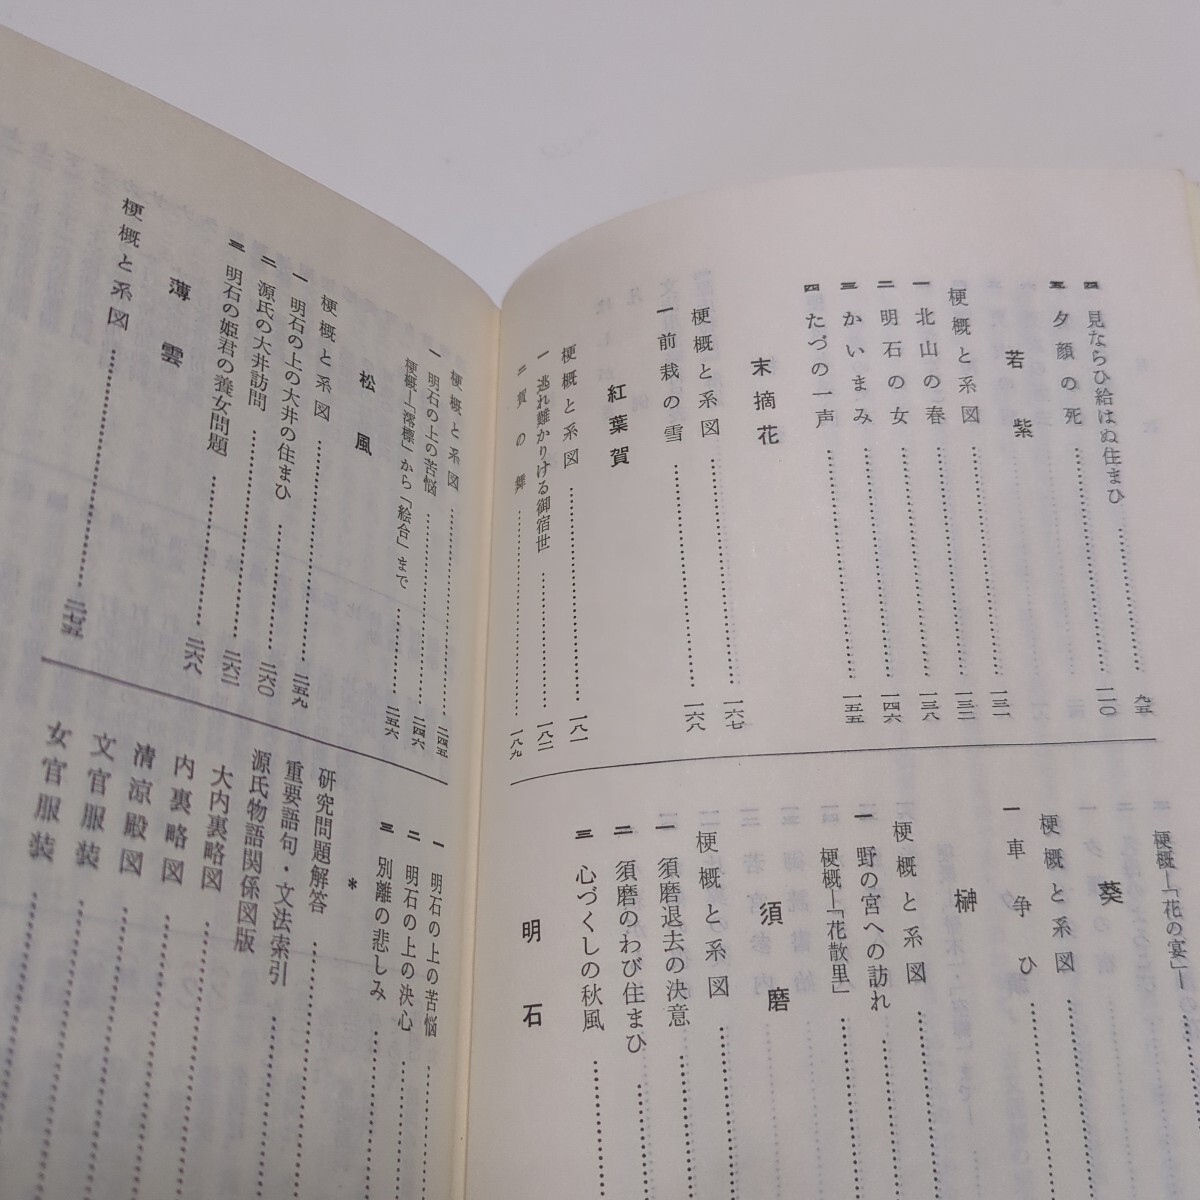 四 見ならひ給はぬ住まひ……九五
五 夕顔の死……一一〇
若紫
梗概と系図……一三一
一 北山の春……一三二
二 明石の女……一三八
三 かいまみ……一四六
四 たづの一声……一五五
末摘花
梗概と系図……一六七
一 前栽の雪……一六八
紅葉賀
梗概と系図……一八一
一 逃れ難かりける御宿世……一八二
二 賀の舞……一八九
梗概―「花の宴」―
葵
梗概と系図……
一 車争ひ……
榊
梗概と系図……
一 野の宮への訪れ……
梗概―「花散里」……
須磨
梗概と系図……
一 須磨退去の決意……
二 須磨のわび住まひ……
三 心づくしの秋風……
明石
梗概と系図……二四五
一 明石の上の苦悩……二四六
梗概―「澪標」から「絵合」まで……二五六
松風
梗概と系図……二五九
一 明石の上の大井の住まひ……二六〇
二 源氏の大井訪問……二六二
三 明石の姫君の養女問題……二六八
薄雲
梗概と系図……二七五
一 明石の上の苦悩……
二 明石の上の決心……
三 別離の悲しみ……
*
研究問題解答……
重要語句・文法索引……
源氏物語関係図版
大内裏略図……
内裏略図……
清涼殿図……
文官服装……
女官服装……